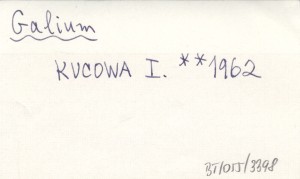 Galium
KUCOWA I. **1962
BT/OIJ/3398